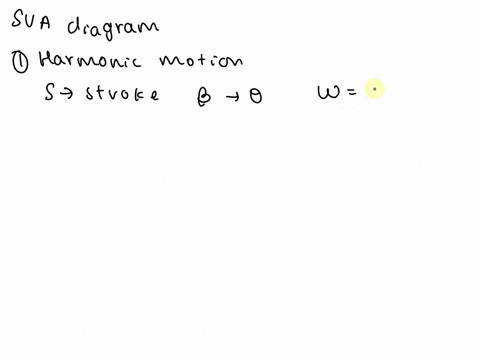 SVA diagram
① Harmonic motion
S → stroke β → θ ω =